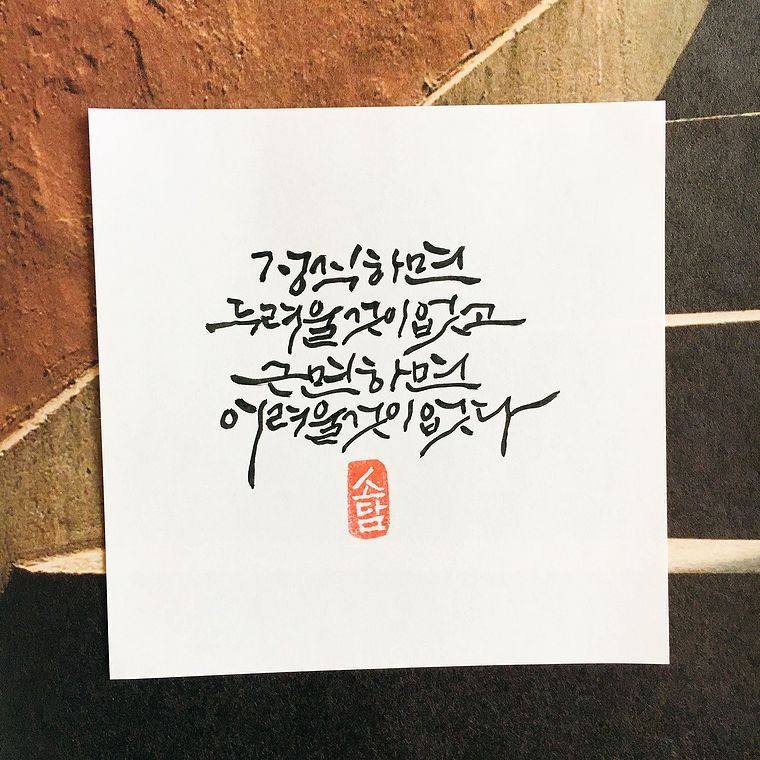 정직하면
두려울것이없고
근면하면
어려울것이없다
소담